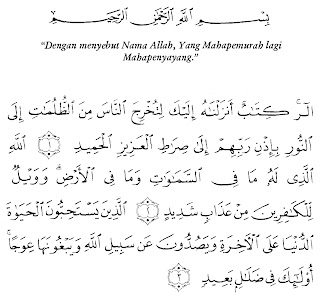 بِسْمِ اللَّهِ الرَّحْمَٰنِ الرَّحِيمِ
“Dengan menyebut Nama Allah, Yang Mahapemurah lagi
Mahapenyayang.”
الٓرۚ كِتَٰبٌ أَنزَلْنَٰهُ إِلَيْكَ لِتُخْرِجَ النَّاسَ مِنَ الظُّلُمَٰتِ إِلَى
النُّورِ بِإِذْنِ رَبِّهِمْ إِلَىٰ صِرَٰطِ الْعَزِيزِ الْحَمِيدِ ١ اللَّهِ
الَّذِي لَهُۥ مَا فِي السَّمَٰوَٰتِ وَمَا فِي الْأَرْضِۗ وَوَيْلٌ
لِّلْكَٰفِرِينَ مِنْ عَذَابٍ شَدِيدٍ ٢ الَّذِينَ يَسْتَحِبُّونَ الْحَيَوٰةَ
الدُّنْيَا عَلَى الْأَخِرَةِ وَيَصُدُّونَ عَن سَبِيلِ اللَّهِ وَيَبْغُونَهَا عِوَجًاۚ
أُوْلَٰٓئِكَ فِي ضَلَٰلٍۭ بَعِيدٍ ٣